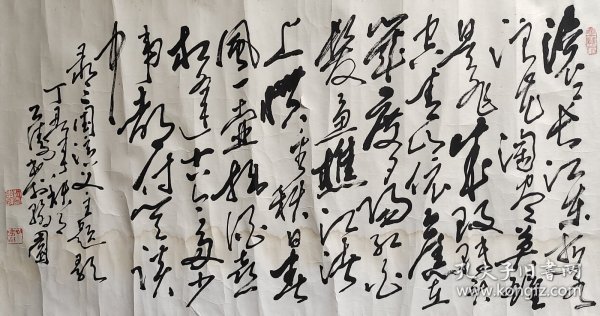 滚滚长江东逝水
浪花淘尽英雄
是非成败转头
空青山依旧在
几度夕阳红白
发渔樵江渚
上惯看秋月春
风一壶浊酒喜
相逢古今多少
事都付笑谈
中
录三国演义主题歌
丁
孔夫子旧书网
www.kongfz.com